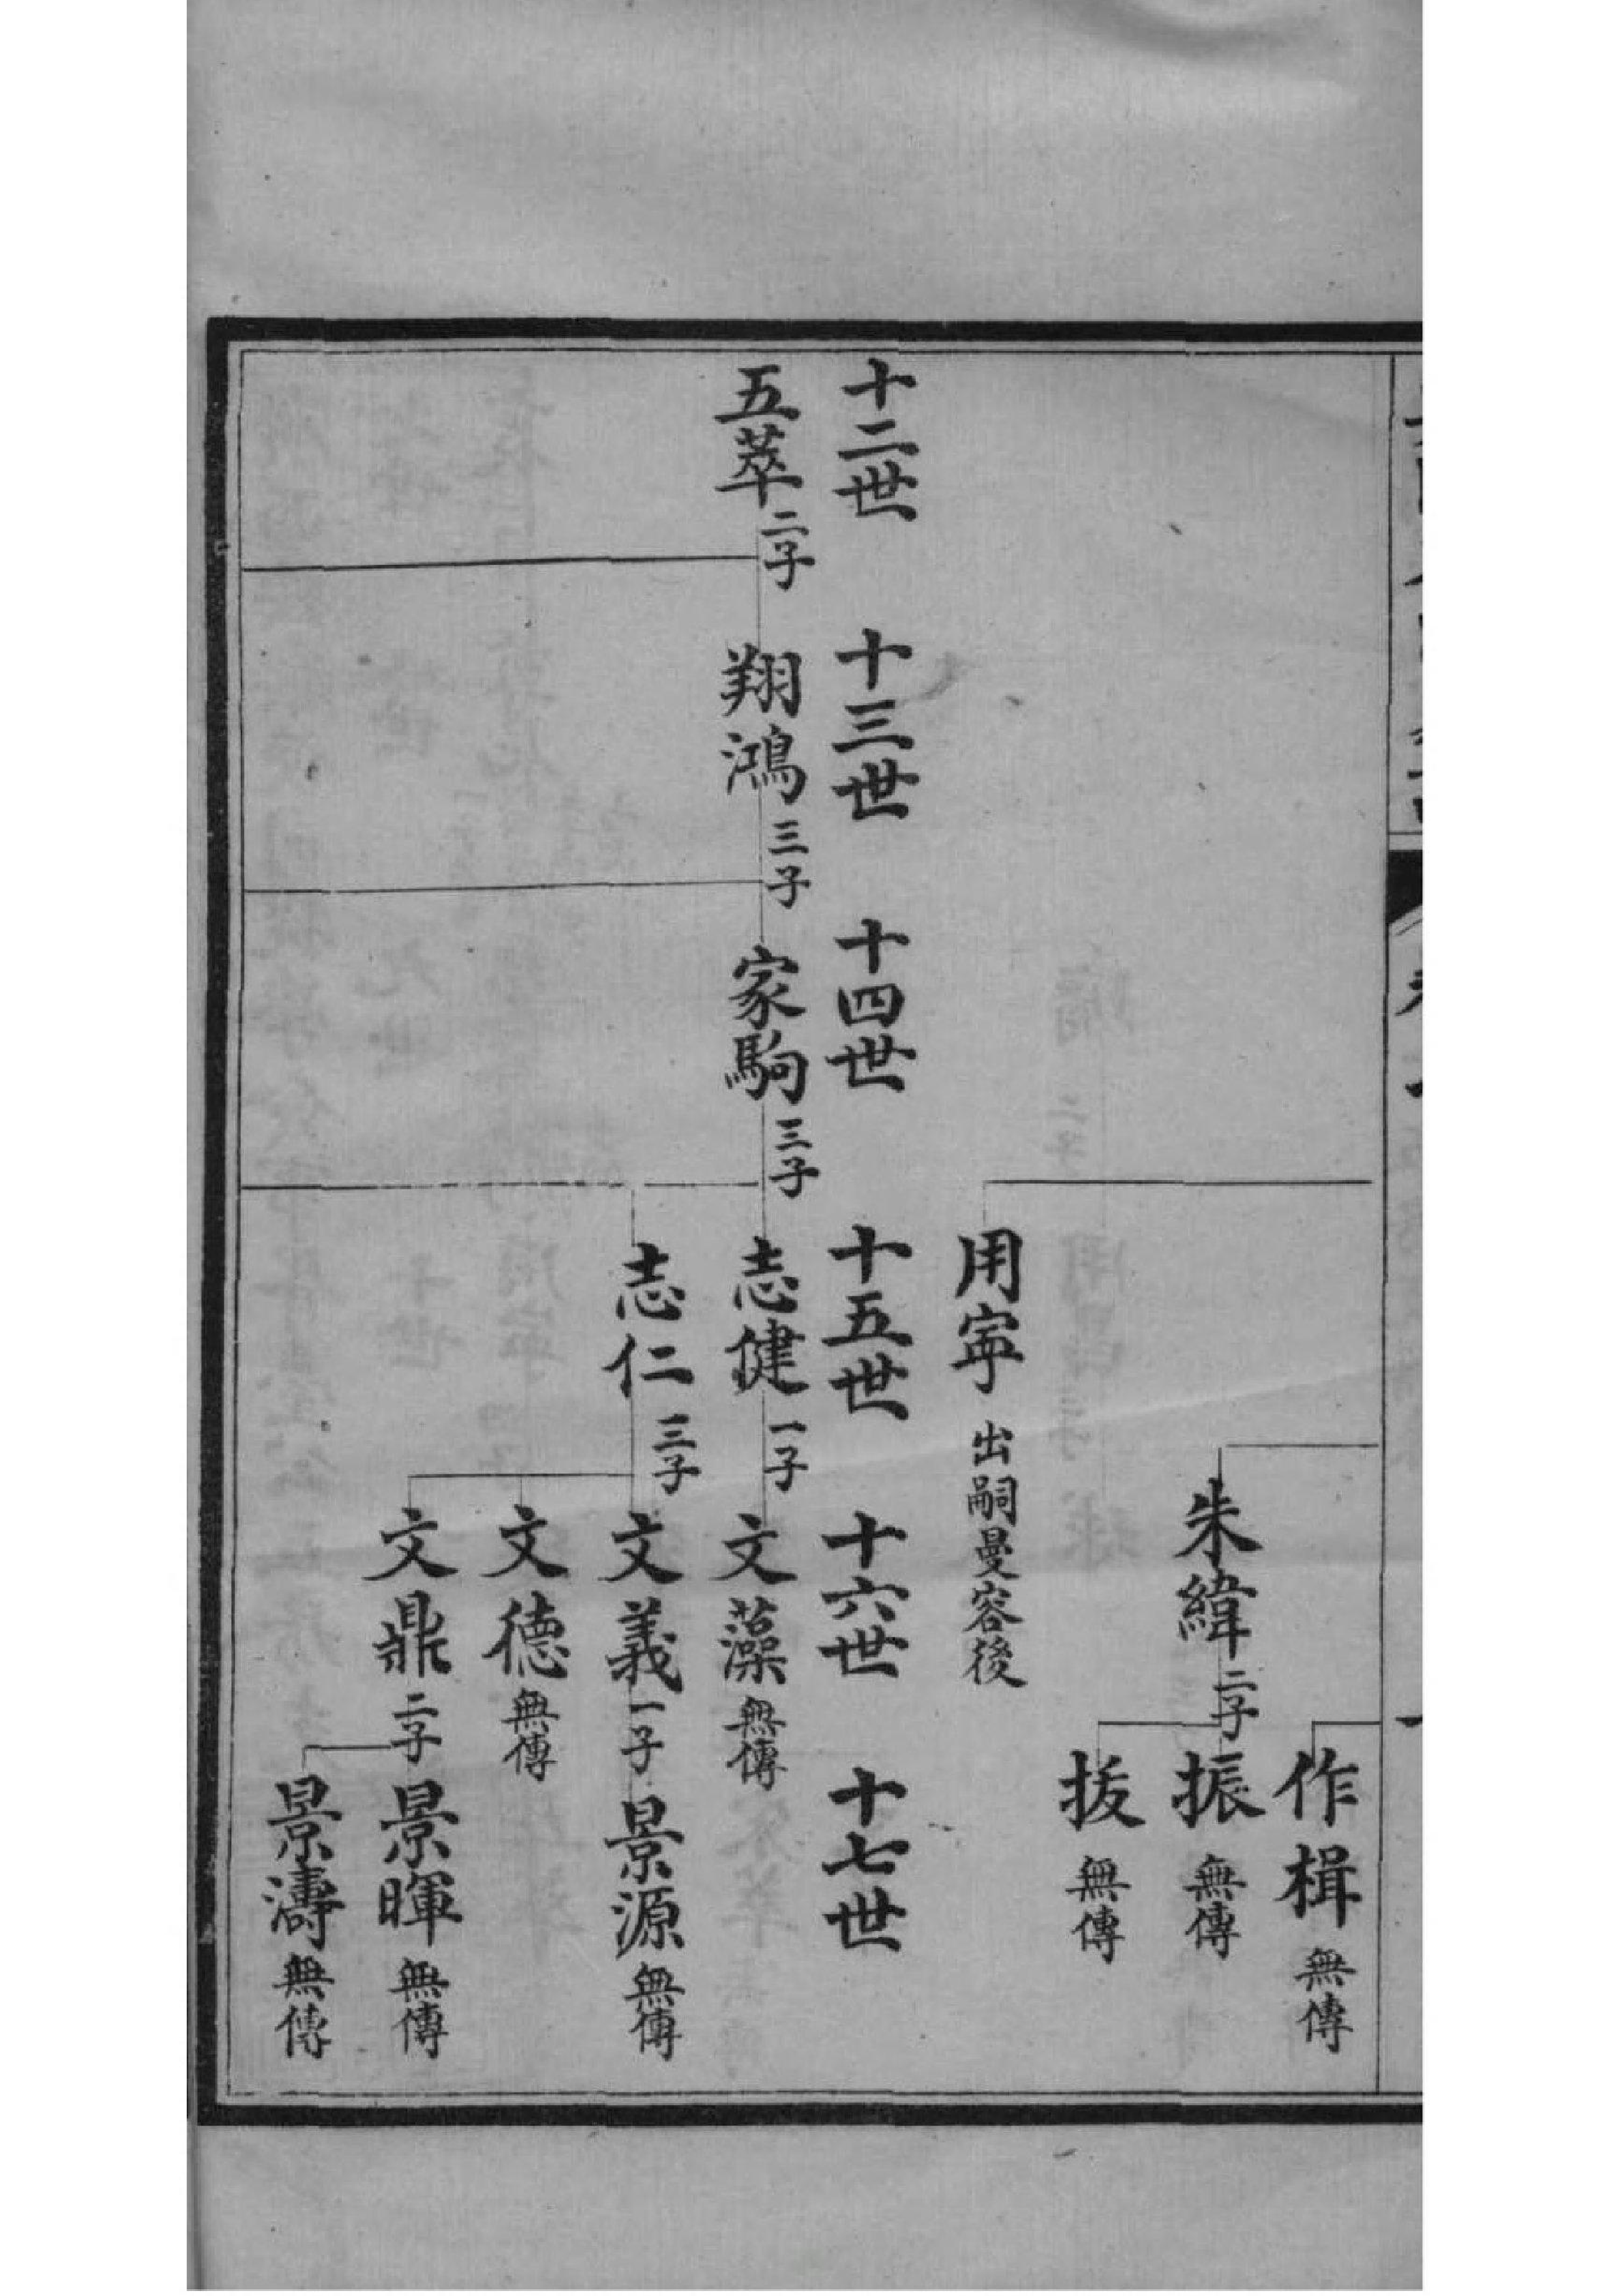 作楫無傳
朱緯二子
振無傳
拔無傳
用寧出嗣曼容後
十二世
十三世
十四世
十五世
十六世
十七世
五萃二子
翔鴻三子
家駒三子
志健一子
文藻無傳
志仁三子
文義一子
景源無傳
文德無傳
文鼎二子
景暉無傳
景濤無傳